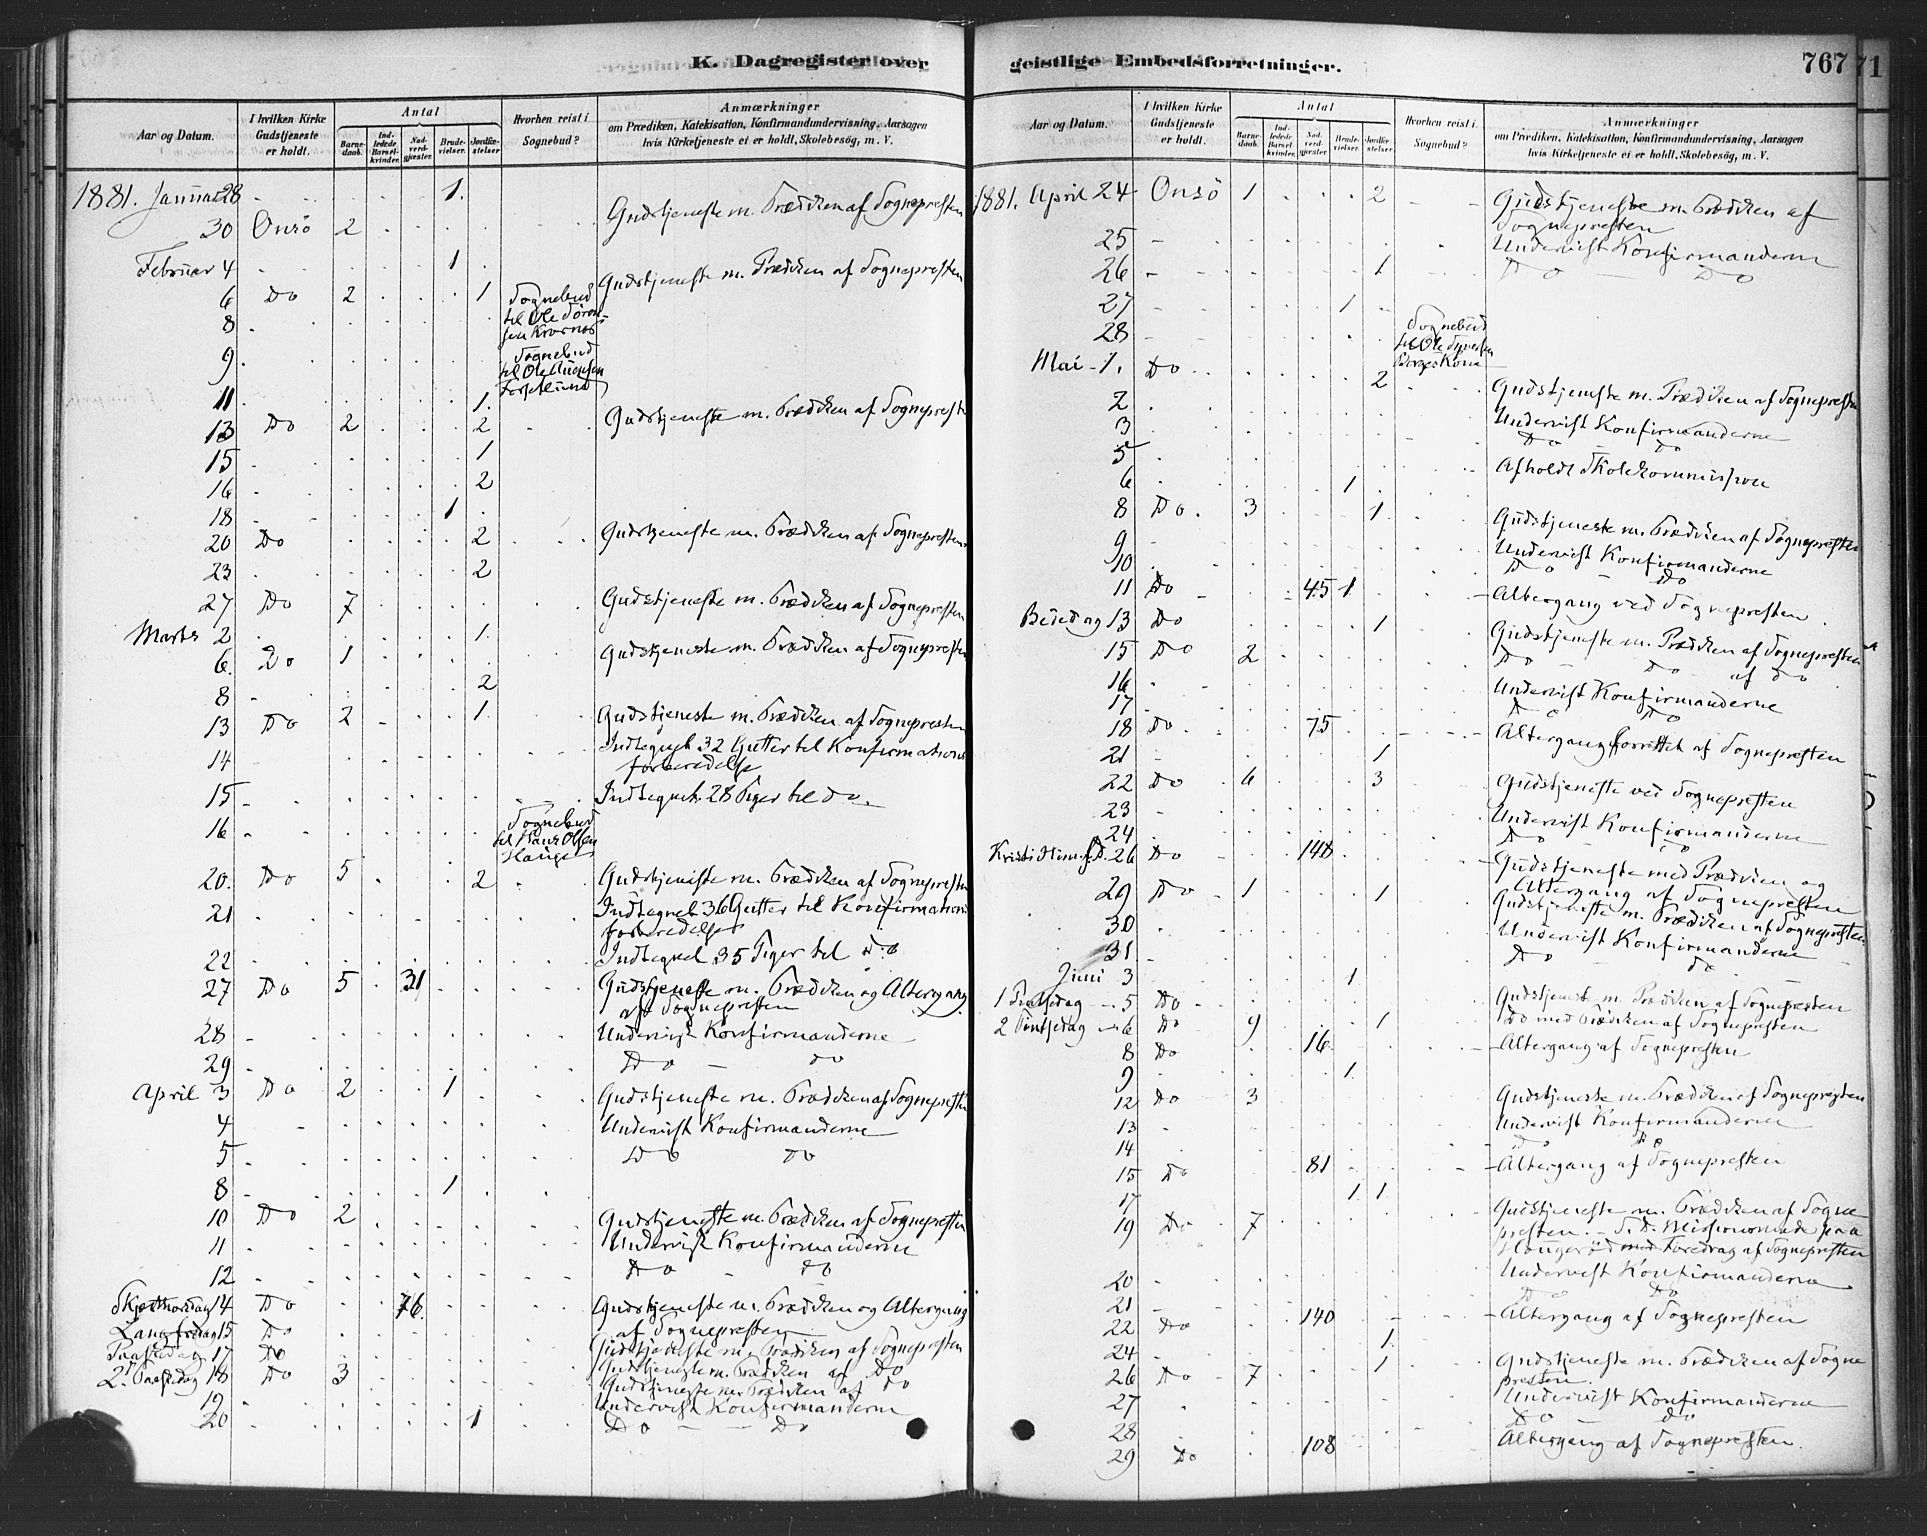 K. Dagregister over
Aar og Datum.
I hvilken Kirke Gudstjeneste er holdt.
Antal
Barnedaab.
Indledede Barselkvinder.
Nadverdgjæster.
Brudevielser.
Jordfæstelser
Hvorhen reist i Sognebud?
Anmærkninger
om Prædiken, Katekisation, Konfirmandundervisning, Aarsagen
hvis Kirketjeneste ei er holdt, Skolebesög, m. V.
1881. Januar 28 1.
30 Onsö 2 Gudstjeneste m. Prædiken af Sognepresten
Februar 4 1
6 Do 2 1 Gudstjeneste m. Prædiken af Sognepresten
8 Sognebud
til Ole
9 Sognebud
til Ole
11 1.
13 Do 2 2 Gudstjeneste m. Prædiken af Sognepresten
15 1
16 2
18 1
20 Do 2 Gudstjeneste m. Prædiken af Sognepresten
23 2
27 Do 7 Gudstjeneste m. Prædiken af Sognepresten
Marts 2 1.
6. Do 1 Gudstjeneste m. Prædiken af Sognepresten
8 2
13 Do 2 1 Gudstjeneste m. Prædiken af Sognepresten
14 Indtegnet 32 Gutter til Konfirmations
forberedelse
15 Indtegnet 28 Piger til Do
16 Sognebud
til Hans Olsen
Hauge
20. Do 5 2 Gudstjeneste m. Prædiken af Sognepresten
21 Indtegnet 36 Gutter til Konfirmations
forberedelse
22 Indtegnet 35 Piger til Do
27 Do 5 31 Gudstjeneste m. Prædiken og Altergang
af Sognepresten
28 Undervist Konfirmanderne
29 Do Do
April 3 Do 2 1 Gudstjeneste m. Prædiken af Sognepresten
4 Undervist Konfirmanderne
5 Do Do
8 1
10 Do 2 Gudstjeneste m. Prædiken af Sognepresten
11 Undervist Konfirmanderne
12 Do Do
Skjærthorsdag 14 Do 76. Gudstjeneste m. Prædiken og Altergang
af Sognepresten
Langfredag 15 Do Gudstjeneste m. Prædiken af Sognepresten
Paaskedag 17 Do Gudstjeneste m. Prædiken af Do
2. Paaskedag 18 Do 3 Gudstjeneste m. Prædiken af Do
19 Undervist Konfirmanderne
20 1 Do Do
geistlige Embedsforretninger.
767
71
Aar og Datum.
I hvilken Kirke Gudstjeneste er holdt.
Antal
Barnedaab.
Indledede Barselkvinder.
Nadverdgjæster.
Brudevielser.
Jordfæstelser.
Hvorhen reist i Sognebud?
Anmærkninger
om Prædiken, Katekisation, Konfirmandundervisning, Aarsagen
hvis Kirketjeneste ei er holdt, Skolebesög, m. V.
1881. April 24 Onsö 1 2 Gudstjeneste m. Prædiken af
Sognepresten
25 Undervist Konfirmanderne
26 1 Do Do
27 1
28 Sognebud
til Ole
Kone
Mai 1. Do 2 Gudstjeneste m. Prædiken af Sognepresten
2 Undervist Konfirmanderne
3 Do Do
5 Afholdt Skolekommission
6 1
8 Do. 3 1 Gudstjeneste m. Prædiken af Sognepresten
9 Undervist Konfirmanderne
10 Do Do
11 Do 45 1 Altergang ved Sognepresten
Bededag 13 Do 1 Gudstjeneste m. Prædiken af Sognepresten
15 Do 2 Do Do af Do
16 Undervist Konfirmanderne
17 Do Do
18 Do 75 Altergang forrettet af Sognepresten
21 1
22 Do 6 3 Gudstjeneste ved Sognepresten
23 Undervist Konfirmanderne
24 Do Do
Kristi Him.f.D. 26 Do 148 Gudstjeneste med Prædiken og
Altergang af Sognepresten
29 Do 1 1 Gudstjeneste m. Prædiken af Sognepresten
30 Undervist Konfirmanderne
31 Do Do
Juni 3 1
1 Pintsedag 5 Do Gudstjeneste m. Prædiken af Sognepresten
2 Pintsedag 6 Do 9 1 Do med Prædiken af Sognepresten
8 Do 16 Altergang af Sognepresten
9 1
12 Do 3 Gudstjeneste m. Prædiken af Sognepresten
13 Undervist Konfirmanderne
14 Do Do
15 Do 81 Altergang af Sognepresten
17 1 1
19 Do 7 Gudstjeneste m. Prædiken af Sogne
presten. S. D. Missionsmöde paa
Haugeröd med Foredrag af Sognepresten
20 Undervist Konfirmanderne
21 Do Do
22 Do 140 Altergang af Sognepresten
24 1
26 Do 7 1 Gudstjeneste m. Prædiken af Sogne
presten.
27 Undervist Konfirmanderne
28 Do Do
29 Do 108 Altergang af Sognepresten.